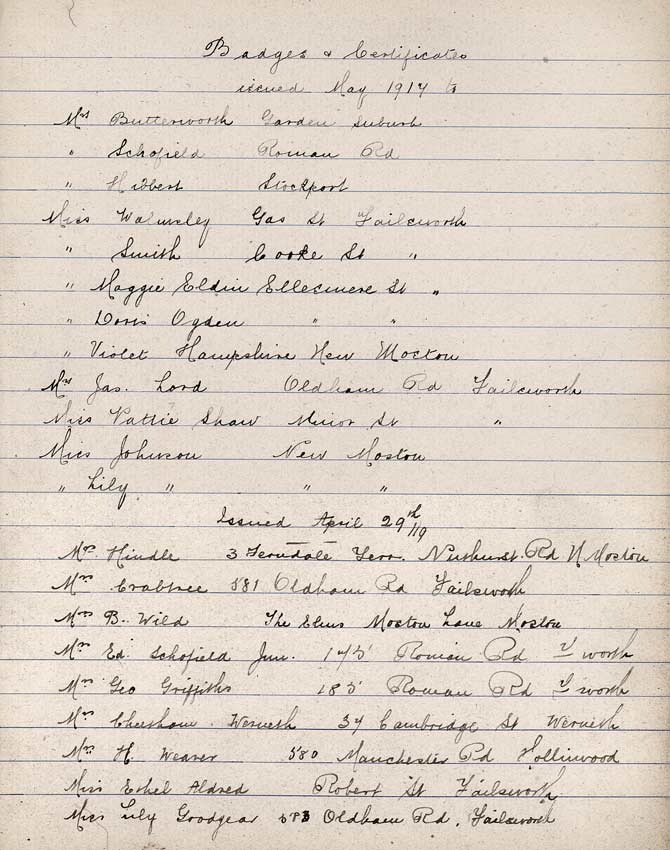 Badges & Certificates
issued May 1917 to
Mrs Butterworth Garden Suburb
" Schofield Roman Rd
" Hibbert Stockport
Miss Walmsley Gas St Failsworth
" Smith Cooke St "
" Maggie Eldin Ellesmere St "
" Doris Ogden " "
" Violet Hampshire New Moston
Mrs Jas. Lord Oldham Rd Failsworth
Miss Pattie Shaw Minor St "
Miss Johnson New Moston
" Lily " " "
Issued April 29th/19
Mrs Hindle 3 Ferndale Terr. Nuthurst Rd N Moston
Mrs Crabtree 581 Oldham Rd Failsworth
Mrs B. Wild The Elms Moston Lane Moston
Mrs Ed. Schofield Jun. 175 Roman Rd F worth
Mrs Geo Griffiths 185 Roman Rd F worth
Mrs Cheetham Werneth 34 Cambridge St Werneth
Mrs H Weaver 580 Manchester Rd Hollinwood
Miss Ethel Aldred Robert St Failsworth
Miss Lily Goodyear 583 Oldham Rd, Failsworth